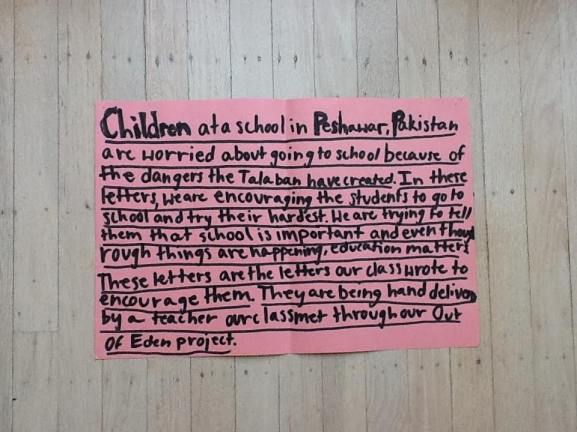 Children at a school in Peshawar, Pakistan
are worried about going to school because of
the dangers the Talaban have created. In these
letters, we are encouraging the students to go to
school and try their hardest. We are trying to tell
them that school is important and even though
rough things are happening, education matters.
These letters are the letters our class wrote to
encourage them. They are being hand delivered
by a teacher our class met through our Out
of Eden project.